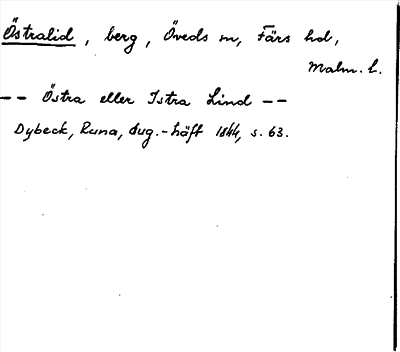 Östralid, berg, Öveds sn, Färs hd,
Malm. l.
-- Östra eller Istra Lind --
Dybeck, Runa, Aug.-häft 1844, s. 63.